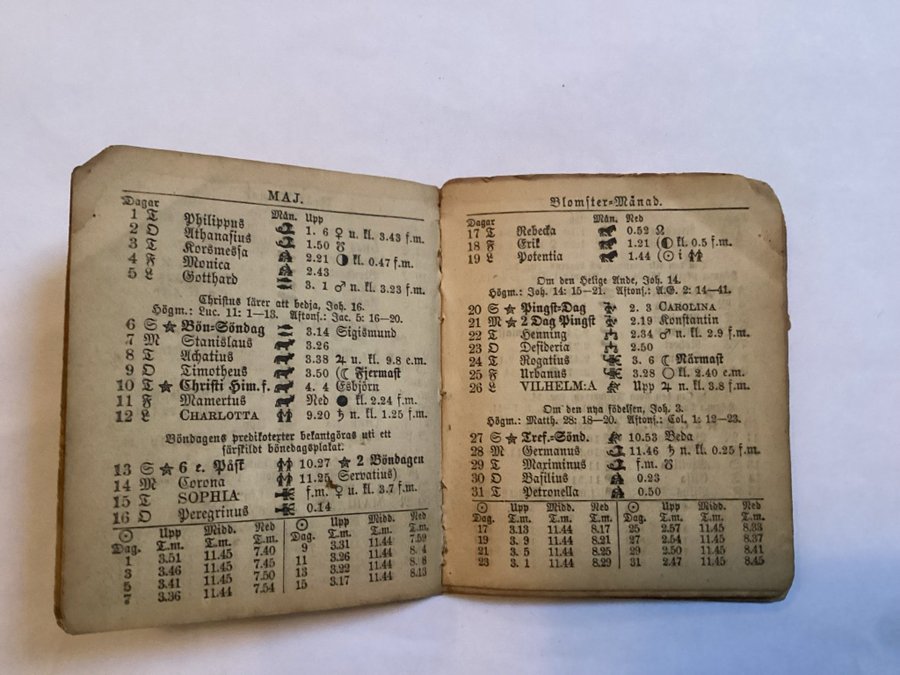 MAJ.
Dagar Mån. Upp
1 T Philippus
2 O Athanasius 1. 6 ♀ u. kl. 3.43 f.m.
3 T Korsmessa 1.50 ☋
4 F Monica 2.21 ◑ kl. 0.47 f.m.
5 L Gotthard 2.43
3. 1 ♂ n. kl. 3.23 f.m.
Christus lärer att bedja, Joh. 16.
Högm.: Luc. 11: 1—13. Aftons.: Jac. 5: 16—20.
6 S ★ Bön-Söndag 3.14 Sigismund
7 M Stanislaus 3.26
8 T Achatius 3.38 ♃ u. kl. 9.8 e.m.
9 O Timotheus 3.50 (☾ Fjermast
10 T ★ Christi Him.f. 4. 4 Esbjörn
11 F Mamertus Ned ● kl. 2.24 f.m.
12 L CHARLOTTA 9.20 ♄ n. kl. 1.25 f.m.
Böndagens predikotexter bekantgöras uti ett
särskildt bönedagsplakat.
13 S ★ 6 e. Påsk 10.27 ★ 2 Böndagen
14 M Corona 11.25 Servatius)
15 T SOPHIA f.m. ♀ u. kl. 3.7 f.m.
16 O Peregrinus 0.14
☉ Upp Midd. Ned ☉ Upp Midd. Ned
Dag. T.m. T.m. T.m. Dag. T.m. T.m. T.m.
1 3.51 11.45 7.40 9 3.31 11.44 7.59
3 3.46 11.45 7.45 11 3.26 11.44 8. 4
5 3.41 11.45 7.50 13 3.22 11.44 8. 8
7 3.36 11.44 7.54 15 3.17 11.44 8.13
Blomster-Månad.
Dagar Mån. Ned
17 T Rebecka 0.52 ☊
18 F Erik 1.21 (◐ kl. 0.5 f.m.
19 L Potentia 1.44 (☉ i ♊
Om den Helige Ande, Joh. 14.
Högm.: Joh. 14: 15—21. Aftons.: A.G. 2: 14—41.
20 S ★ Pingst-Dag 2. 3 CAROLINA
21 M ★ 2 Dag Pingst 2.19 Konstantin
22 T Henning 2.34 ♂ n. kl. 2.9 f.m.
23 O Desideria 2.50
24 T Rogatius 3. 6 ☾ Närmast
25 F Urbanus 3.28 ○ kl. 2.40 e.m.
26 L VILHELM:A Upp ♃ n. kl. 3.8 f.m.
Om den nya födelsen, Joh. 3.
Högm.: Matth. 28: 18—20. Aftons.: Col. 1: 12—23.
27 S ★ Tref.-Sönd. 10.53 Beda
28 M Germanus 11.46 ♄ n. kl. 0.25 f.m.
29 T Maximinus f.m. ☋
30 O Basilius 0.23
31 T Petronella 0.50
☉ Upp Midd. Ned ☉ Upp Midd. Ned
Dag. T.m. T.m. T.m. Dag. T.m. T.m. T.m.
17 3.13 11.44 8.17 25 2.57 11.45 8.33
19 3. 9 11.44 8.21 27 2.54 11.45 8.37
21 3. 5 11.44 8.25 29 2.50 11.45 8.41
23 3. 1 11.44 8.29 31 2.47 11.45 8.45